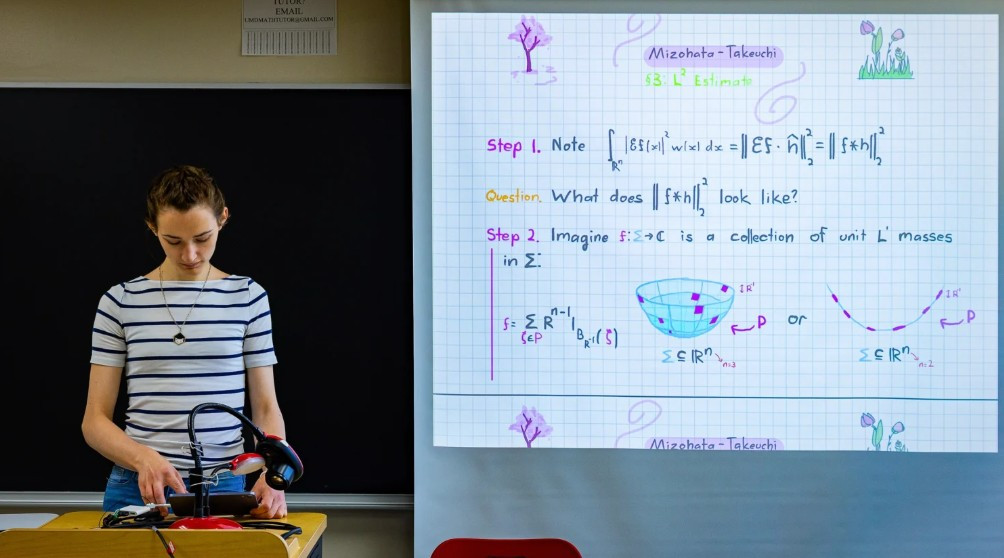 TUTOR?
EMAIL
UMDMATHTUTOR@GMAIL.COM
Mizohata-Takeuchi
§3: L² Estimate
Step 1. Note ∫_{ℝⁿ} |Ɛf(x)|² w(x) dx = ‖Ɛf · ĥ‖₂² = ‖f*h‖₂²
Question. What does ‖f*h‖₂² look like?
Step 2. Imagine f:Σ→ℂ is a collection of unit L¹ masses
in Σ:
f = Σ_{ζ∈P} R^{n-1} 1_{B_{R^{-1}}(ζ)}
↕R⁻¹
P
or
↕R⁻¹
P
Σ ⊆ ℝⁿ n=3
Σ ⊆ ℝⁿ n=2
Mizohata-Takeuchi